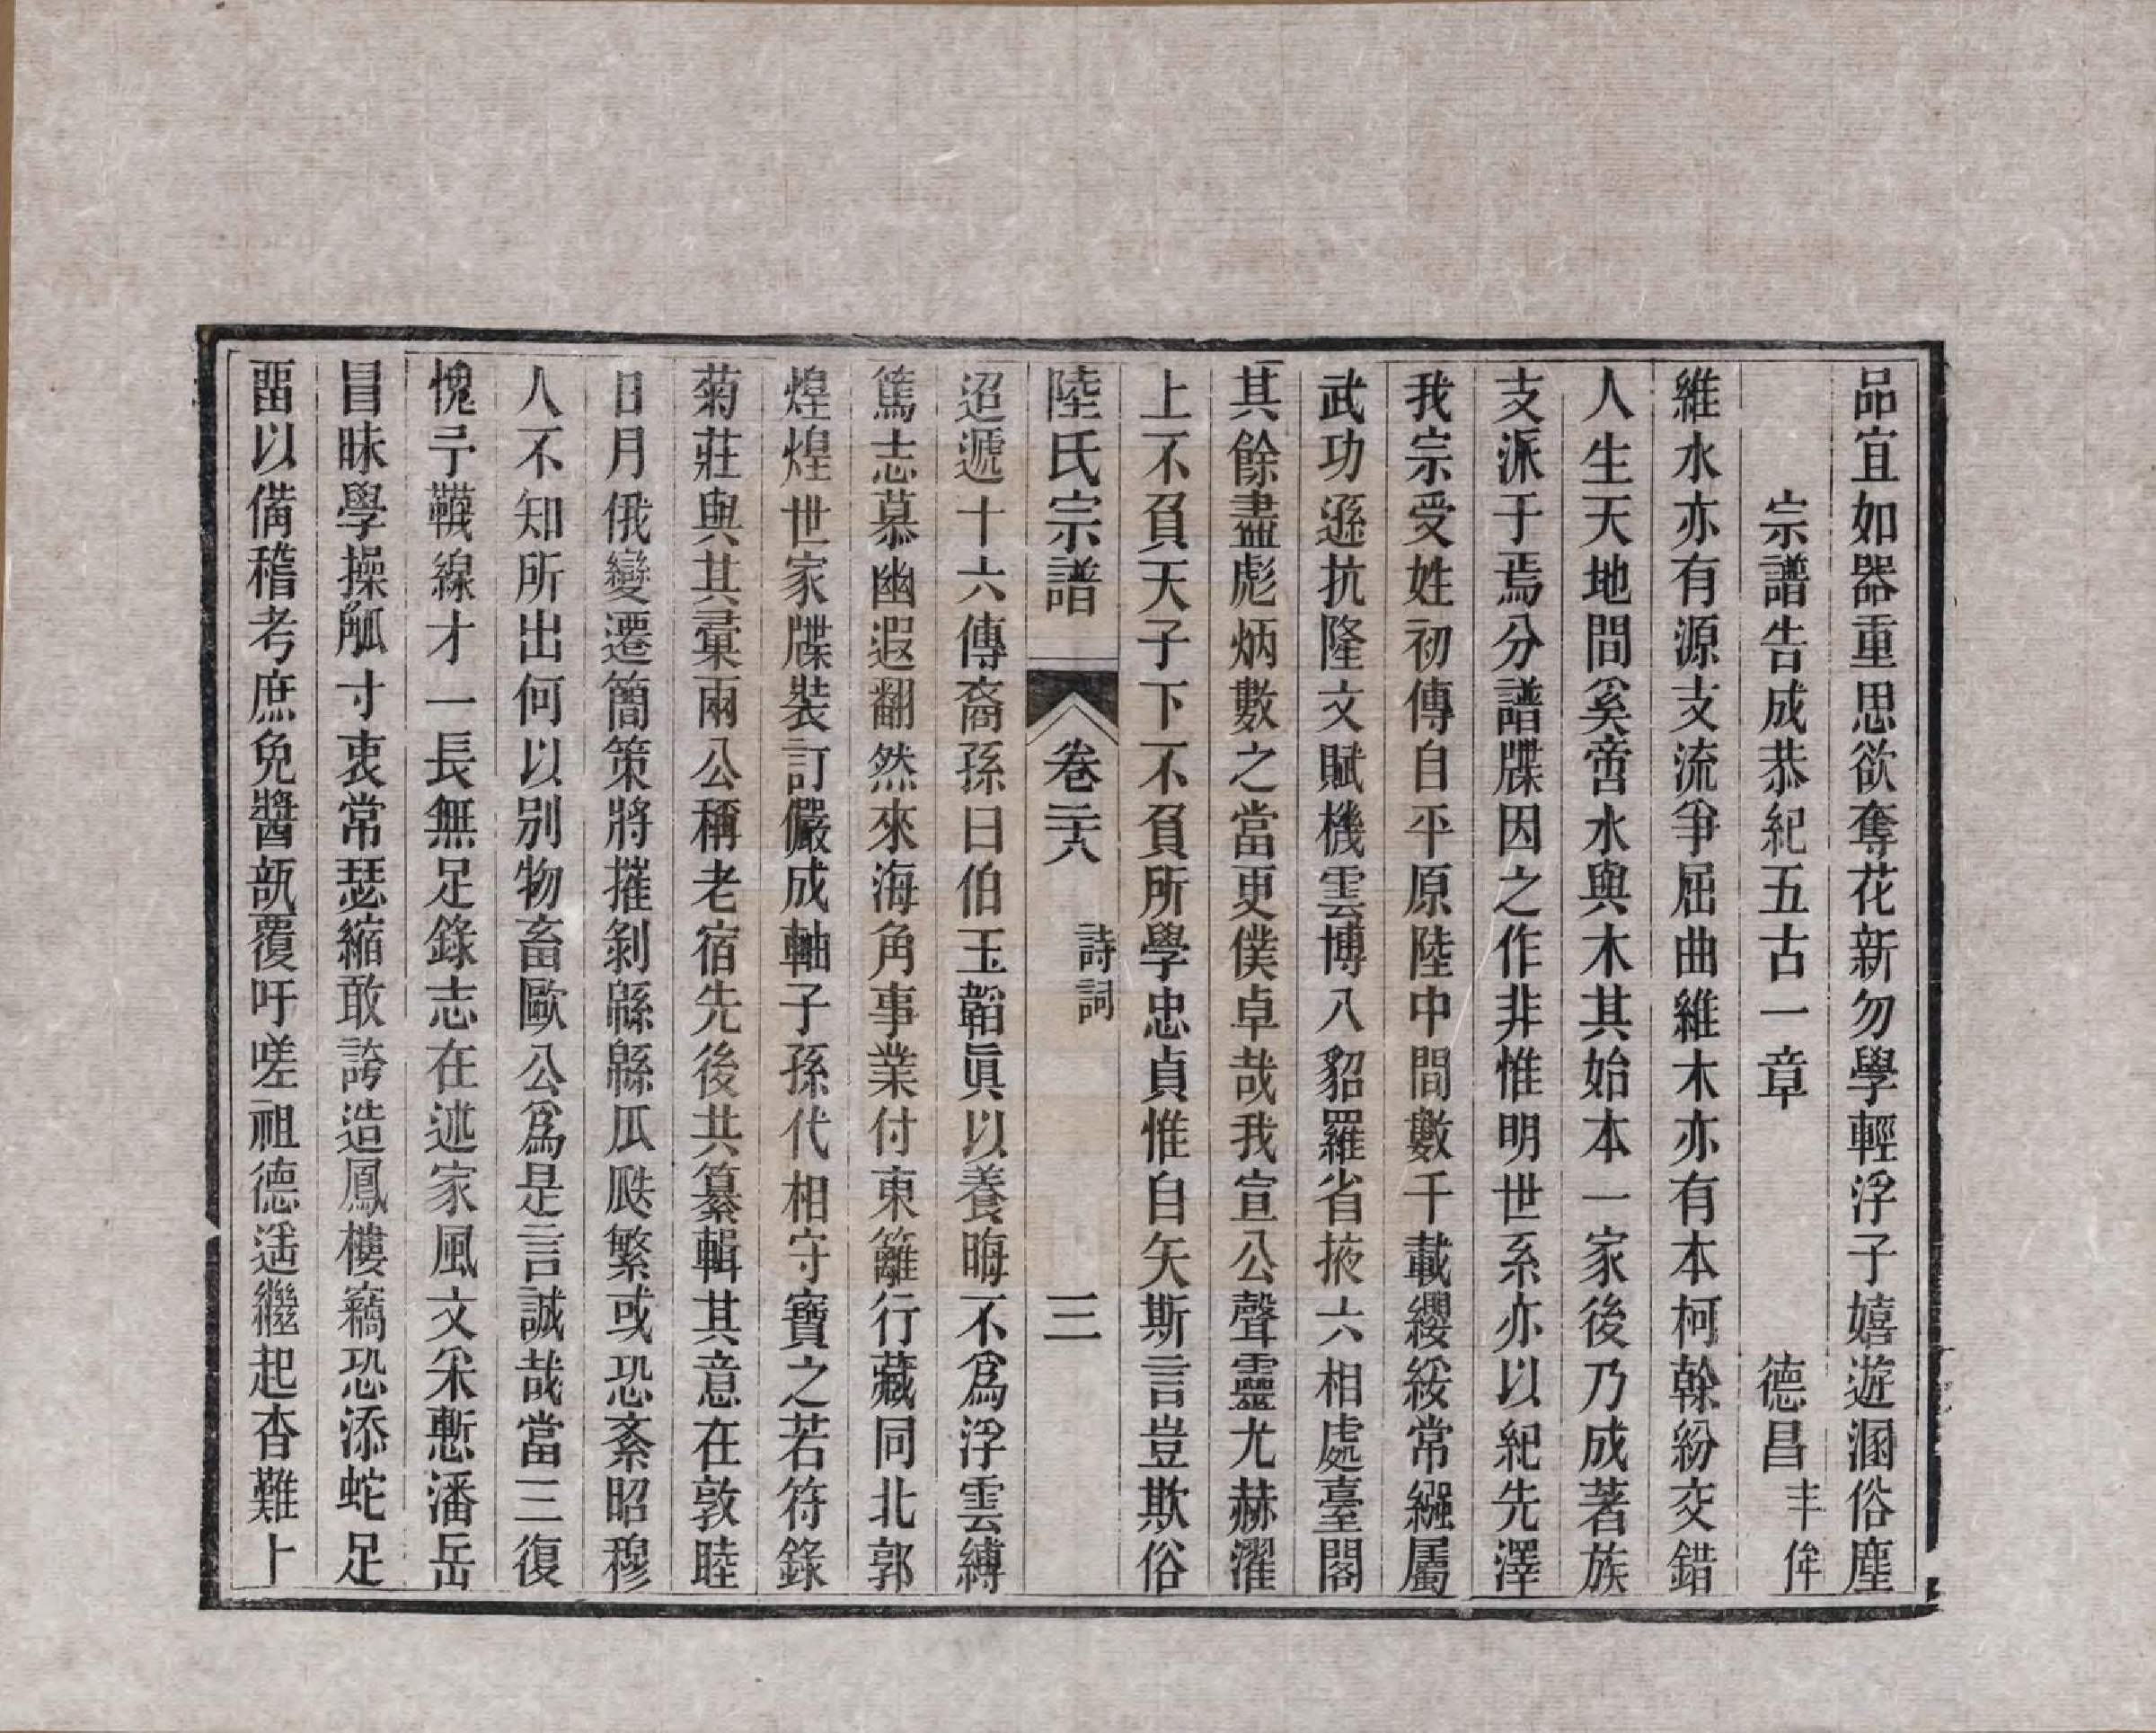 品宜如器重思欲奪花新勿學輕浮子嬉遊溷俗塵
宗譜告成恭紀五古一章 德昌 丰侔
維水亦有源支流爭屈曲維木亦有本柯榦紛交錯
人生天地間奚啻水與木其始本一家後乃成著族
支派于焉分譜牒因之作非惟明世系亦以紀先澤
我宗受姓初傳自平原陸中間數千載纓綏常繦屬
武功遜抗隆文賦機雲博八貂羅省掖六相處臺閣
其餘盡彪炳數之當更僕卓哉我宣公聲靈尤赫濯
上不負天子下不負所學忠貞惟自矢斯言豈欺俗
陸氏宗譜 卷二六 詩詞 三
迢遞十六傳裔孫曰伯玉韜眞以養晦不爲浮雲縛
篤志慕幽遐翻然來海角事業付東籬行藏同北郭
煌煌世家牒裝訂儼成軸子孫代相守寶之若符錄
菊莊與其彙兩公稱老宿先後共纂輯其意在敦睦
日月俄變遷簡策將摧剝緜緜瓜瓞繁或恐紊昭穆
人不知所出何以别物畜歐公爲是言誠哉當三復
愧予韈線才一長無足錄志在述家風文采慙潘岳
冒昧學操觚寸衷常瑟縮敢誇造鳳樓竊恐添蛇足
畱以備稽考庶免醬瓿覆吁嗟祖德遥繼起杳難卜